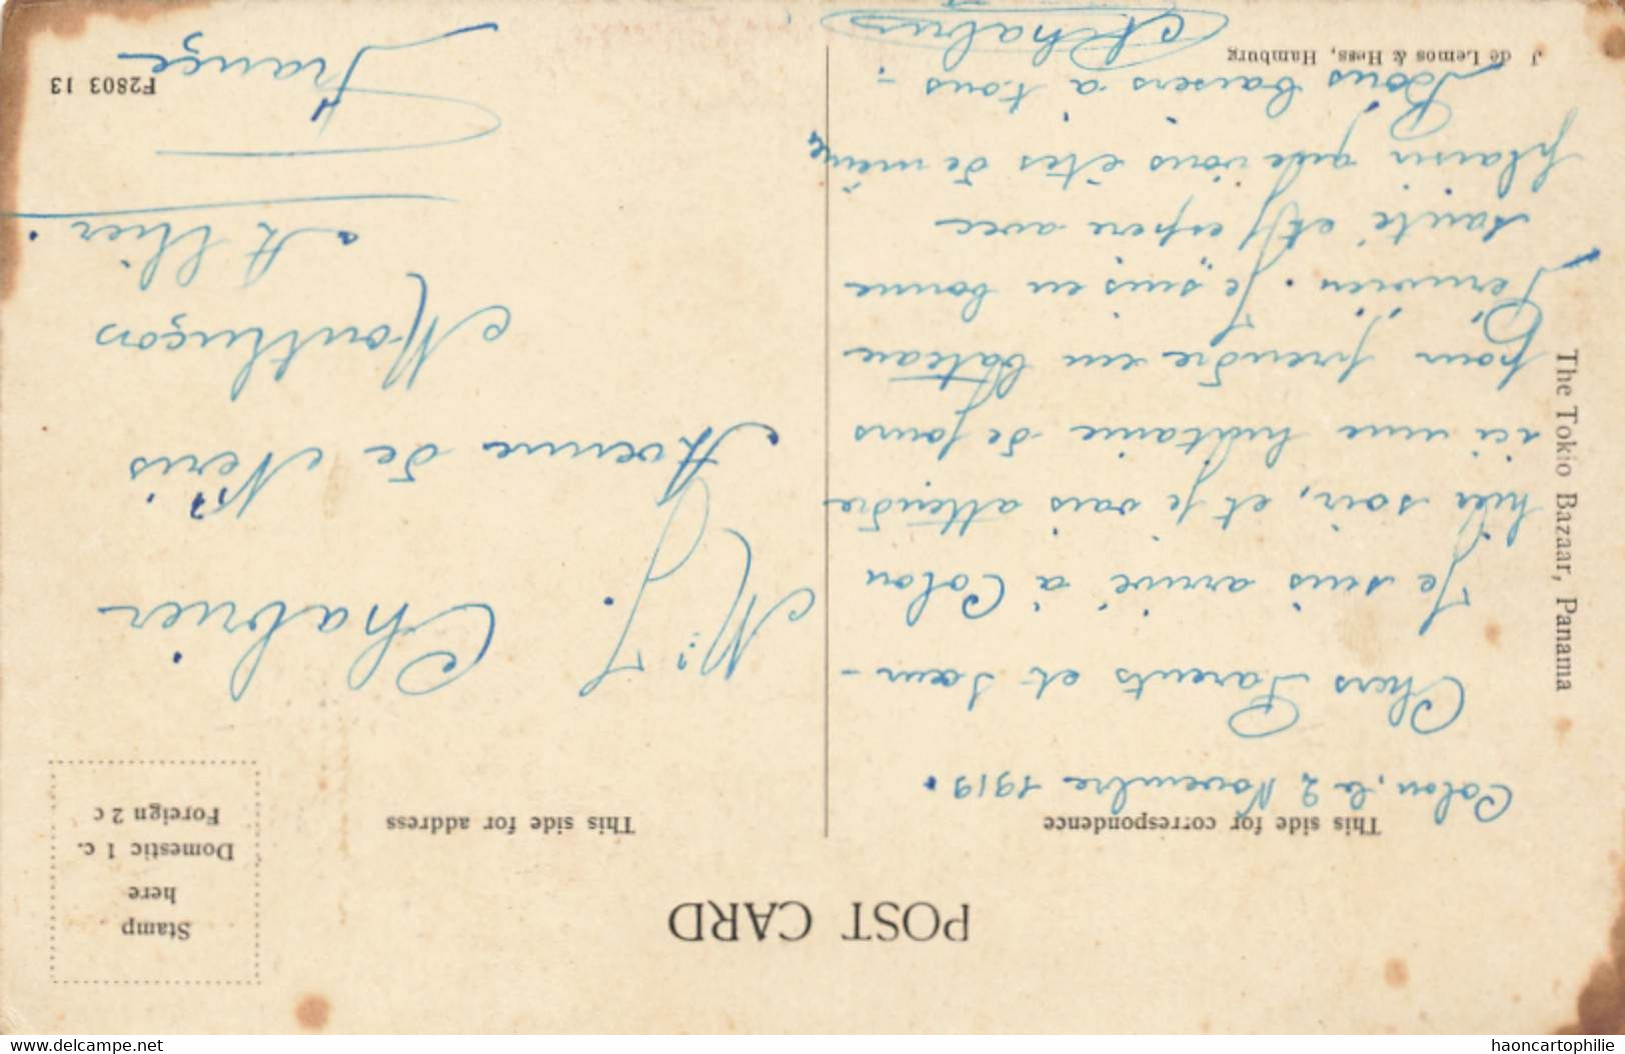 POST CARD
This side for correspondence
Colon, le 2 Novembre 1919.
Chers Parents et Sœur -
Je suis arrivé à Colon
hier soir, et je vais attendre
ici une huitaine de jours
pour prendre un bateau
Péruvien. Je suis en bonne
santé et j'espère avec
plaisir que vous êtes de même
Bons baisers à tous -
Chabrier
J de Lemos & Hess, Hamburg
The Tokio Bazaar, Panama
This side for address
Stamp
here
Domestic 1 c.
Foreign 2 c
Mr J. Chabrier
Avenue de Néris
Montluçon
Allier.
France
F2803 13
www.delcampe.net
haoncartophilie